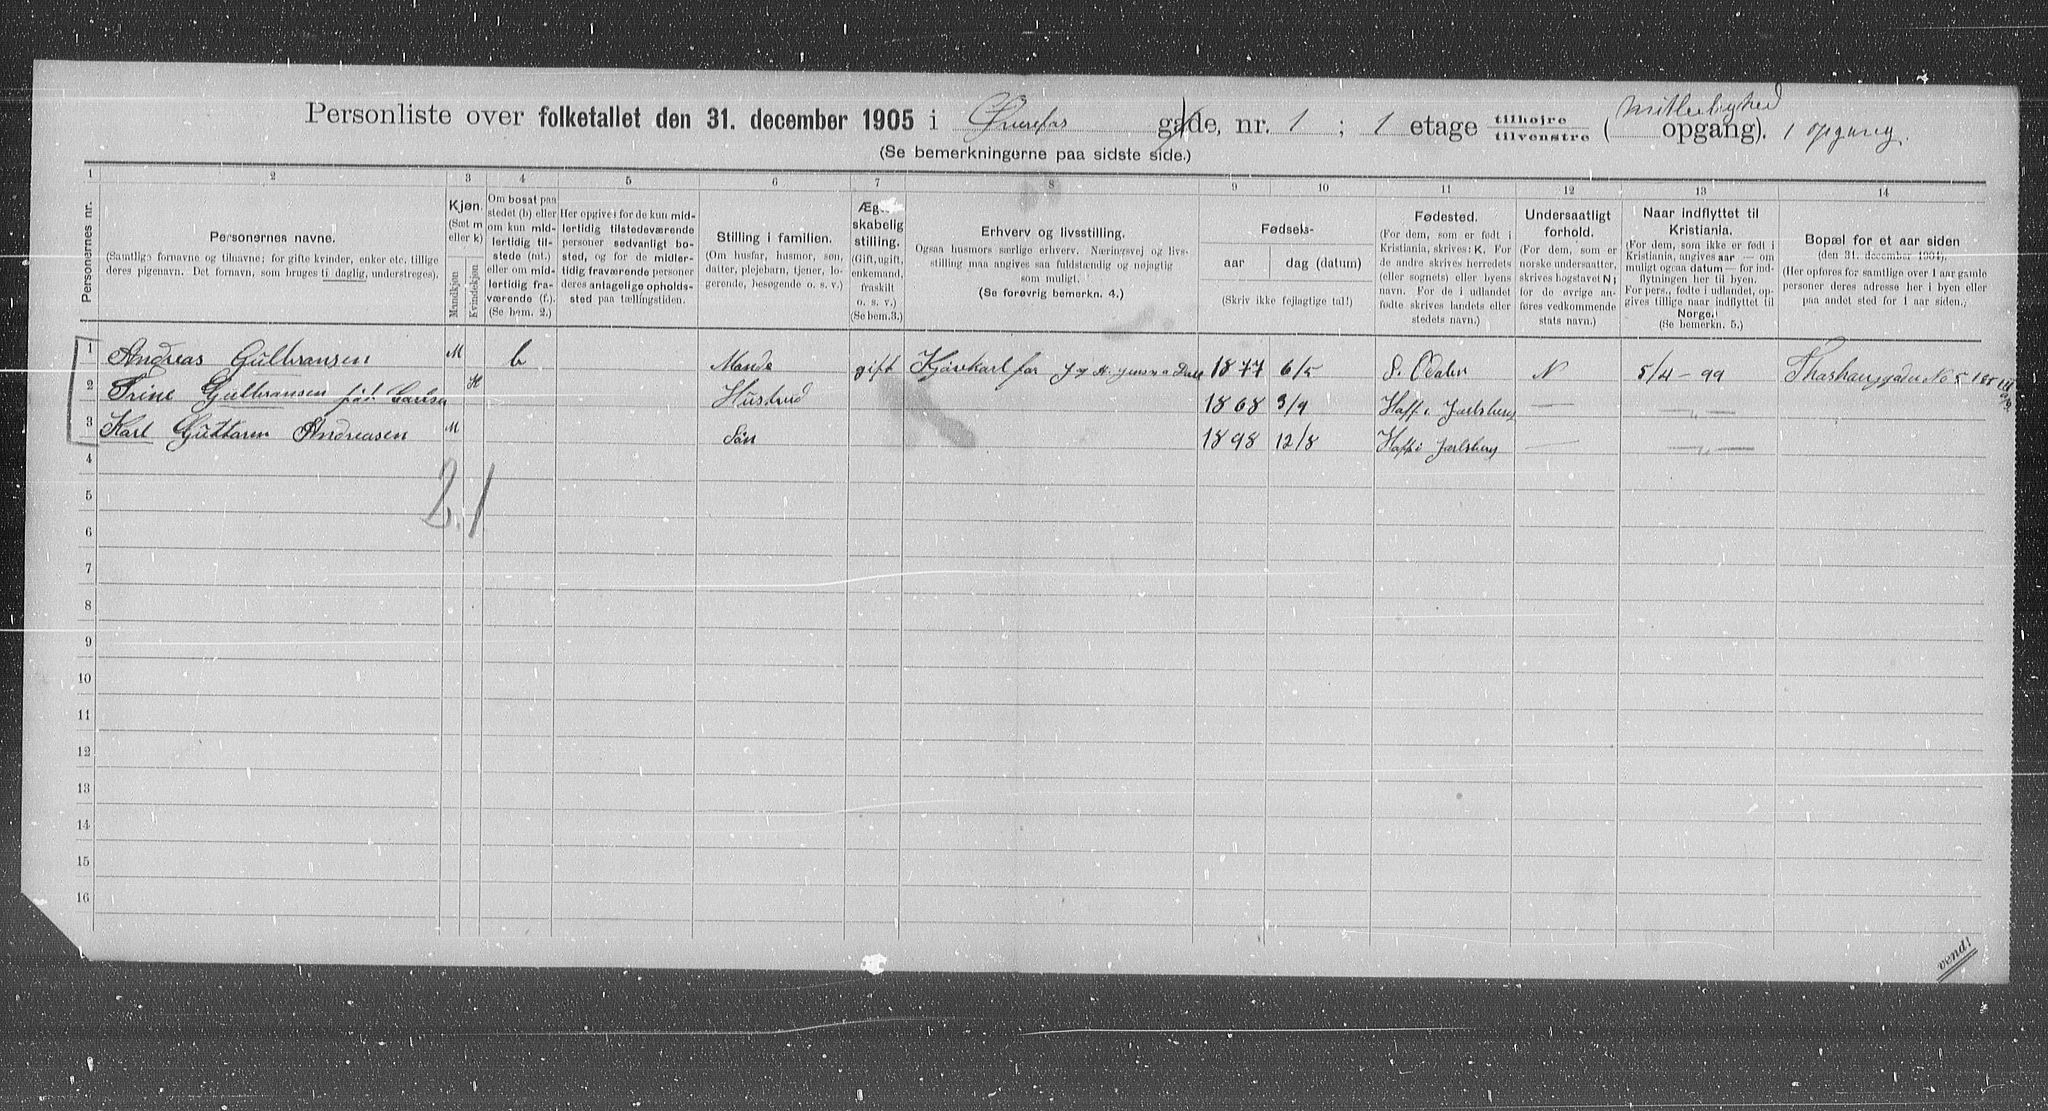 Personliste over folketallet den 31. december 1905 i gade, nr. 1 ; 1 etage tilhøjre tilvenstre ( opgang). 1 opgang.
(Se bemerkningerne paa sidste side.)
1 2 3 4 5 6 7 8 9 10 11 12 13 14
Personernes nr.
Personernes navne.
(Samtlige fornavne og tilnavne; for gifte kvinder, enker etc. tillige
deres pigenavn. Det fornavn, som bruges til daglig, understreges).
Kjøn.
(Sæt m
eller k)
Mandkjøn
Kvindekjøn
Om bosat paa
stedet (b) eller
om kun mid-
lertidig til-
stede (mt.)
eller om mid-
lertidig fra-
værende (f.).
(Se bem. 2.)
Her opgives for de kun mid-
lertidig tilstedeværende
personer sedvanligt bo-
sted, og for de midler-
tidig fraværende personer
deres anlagelige opholds-
sted paa tællingstiden.
Stilling i familien.
(Om husfar, husmor, søn,
datter, plejebarn, tjener, lo-
gerende, besøgende o. s. v.)
Æg-
skabelig
stilling.
(Gift, ugift,
enkemand,
fraskilt
o. s. v.)
(Se bem.3.)
Erhverv og livsstilling.
Ogsaa husmors særlige erhverv. Næringsvej og livs-
stilling maa angives saa fuldstændig og nøjagtig
som muligt.
(Se forøvrig bemerkn. 4.)
Fødsels-
aar
dag (datum)
(Skriv ikke fejlagtige tal!)
Fødested.
(For dem, som er født i
Kristiania, skrives: K. For
de andre skrives herredets
(eller sognets) eller byens
navn. For de i udlandet
fødte skrives landets eller
stedets navn.)
Undersaatligt
forhold.
(For dem, som er
norske undersaatter,
skrives bogstavet N;
for de øvrige an-
føres vedkommende
stats navn.)
Naar indflyttet til
Kristiania.
(For dem, som ikke er født i
Kristiania, angives aar — om
muligt ogsaa datum — for ind-
flytningen her til byen.
For pers., fødte i udlandet, op-
gives tillige naar indflyttet til
Norge.)
(Se bemerkn. 5.)
Bopæl for et aar siden
(den 31. december 1904).
(Her opføres for samtlige over 1 aar gamle
personer deres adresse her i byen eller
paa andet sted for 1 aar siden.)
1 Andreas Gulbransen M b Mande gift Kjørekarl for 1877 6/5 N 5/4 - 99 No 5
2 Trine Gulbransen født K Hustrud 1868 3/9 Haff i Jarlsberg — — „ —
3 Karl Guttorm Andreasen M Søn 1898 12/8 Haff i Jarlsberg — — „ —
4
2.1
5
6
7
8
9
10
11
12
13
14
15
16
Vend!